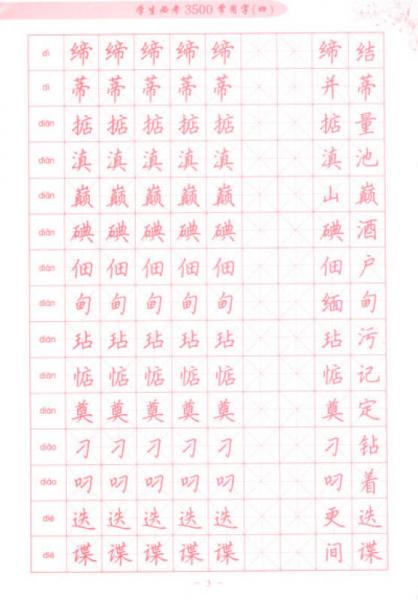 学生必备3500常用字(四)
dì 缔 缔 缔 缔 缔 缔 结
dì 蒂 蒂 蒂 蒂 蒂 并 蒂
diān 掂 掂 掂 掂 掂 掂 量
diān 滇 滇 滇 滇 滇 滇 池
diān 巅 巅 巅 巅 巅 山 巅
diǎn 碘 碘 碘 碘 碘 碘 酒
diàn 佃 佃 佃 佃 佃 佃 户
diàn 甸 甸 甸 甸 甸 缅 甸
diàn 玷 玷 玷 玷 玷 玷 污
diàn 惦 惦 惦 惦 惦 惦 记
diàn 奠 奠 奠 奠 奠 奠 定
diāo 刁 刁 刁 刁 刁 刁 钻
diāo 叼 叼 叼 叼 叼 叼 着
dié 迭 迭 迭 迭 迭 更 迭
dié 谍 谍 谍 谍 谍 间 谍
- 3 -